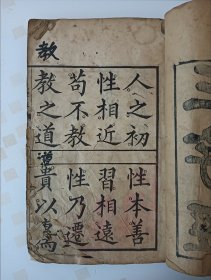 三
教
人之初 性本善
性相近 習相遠
苟不教 性乃遷
教之道 貴以